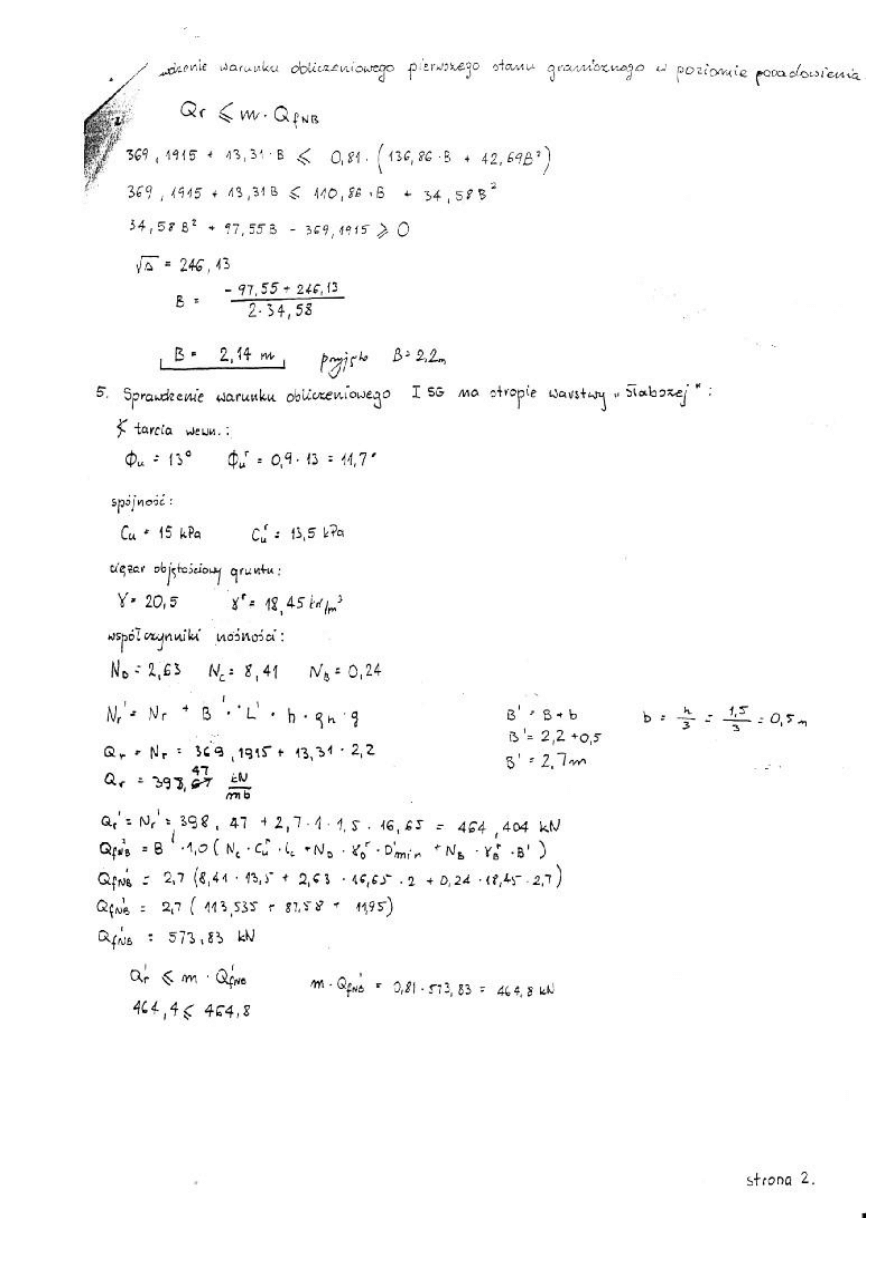 warunku obliczeniowego pierwszego stanu granicznego w poziomie posadowienia
Qr ⩽ m · QfNB
369,1915 + 13,31 · B ⩽ 0,81 · (136,86 · B + 42,69B²)
369,1915 + 13,31B ⩽ 110,86 · B + 34,58B²
34,58B² + 97,55B - 369,1915 ⩾ 0
√Δ = 246,13
B = (-97,55 + 246,13) / (2 · 34,58)
B = 2,14 m przyjęto B = 2,2m
5. Sprawdzenie warunku obliczeniowego I SG na stropie warstwy „słabszej":
∢ tarcia wewn.:
Φu = 13° Φuʳ = 0,9 · 13 = 11,7°
spójność:
Cu = 15 kPa Cuʳ = 13,5 kPa
ciężar objętościowy gruntu:
γ = 20,5 γʳ = 18,45 kN/m³
współczynniki nośności:
ND = 2,63 Nc = 8,41 NB = 0,24
Nr' = Nr + B' · L' · h · gh · g B' = B + b b = h/3 = 1,5/3 = 0,5m
Qr = Nr = 369,1915 + 13,31 · 2,2 B' = 2,2 + 0,5
Qr = 398,47 kN/mb B' = 2,7m
Qr' = Nr' = 398,47 + 2,7 · 1 · 1,5 · 16,65 = 464,404 kN
QfNB' = B' · 1,0 (Nc · Cuʳ · ic + ND · γDʳ · D'min + NB · γBʳ · B')
QfNB' = 2,7 (8,41 · 13,5 + 2,63 · 16,65 · 2 + 0,24 · 18,45 · 2,7)
QfNB' = 2,7 (113,535 + 87,58 + 11,95)
QfNB' = 573,83 kN
Qr' ⩽ m · QfNB' m · QfNB' = 0,81 · 573,83 = 464,8 kN
464,4 ⩽ 464,8
strona 2.